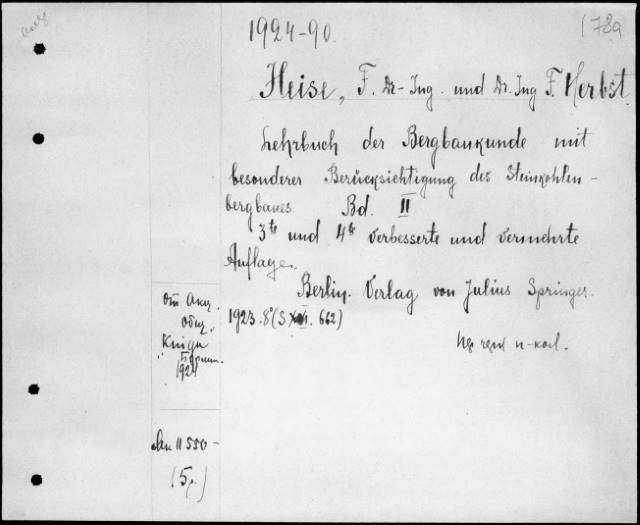 1924-90.
178a
Heise, F. Dr-Ing. und Dr. Ing F. Herbst.
Lehrbuch der Bergbaukunde mit
besonderer Berücksichtigung des Steinkohlen-
bergbaues Bd. II
3te und 4te verbesserte und vermehrte
Auflage.
Berlin. Verlag von Julius Springer.
1923. 8° (S. 662)
от Акц.
Общ.
"Книга"
Берлин.
1924
11550-
(5 р.)